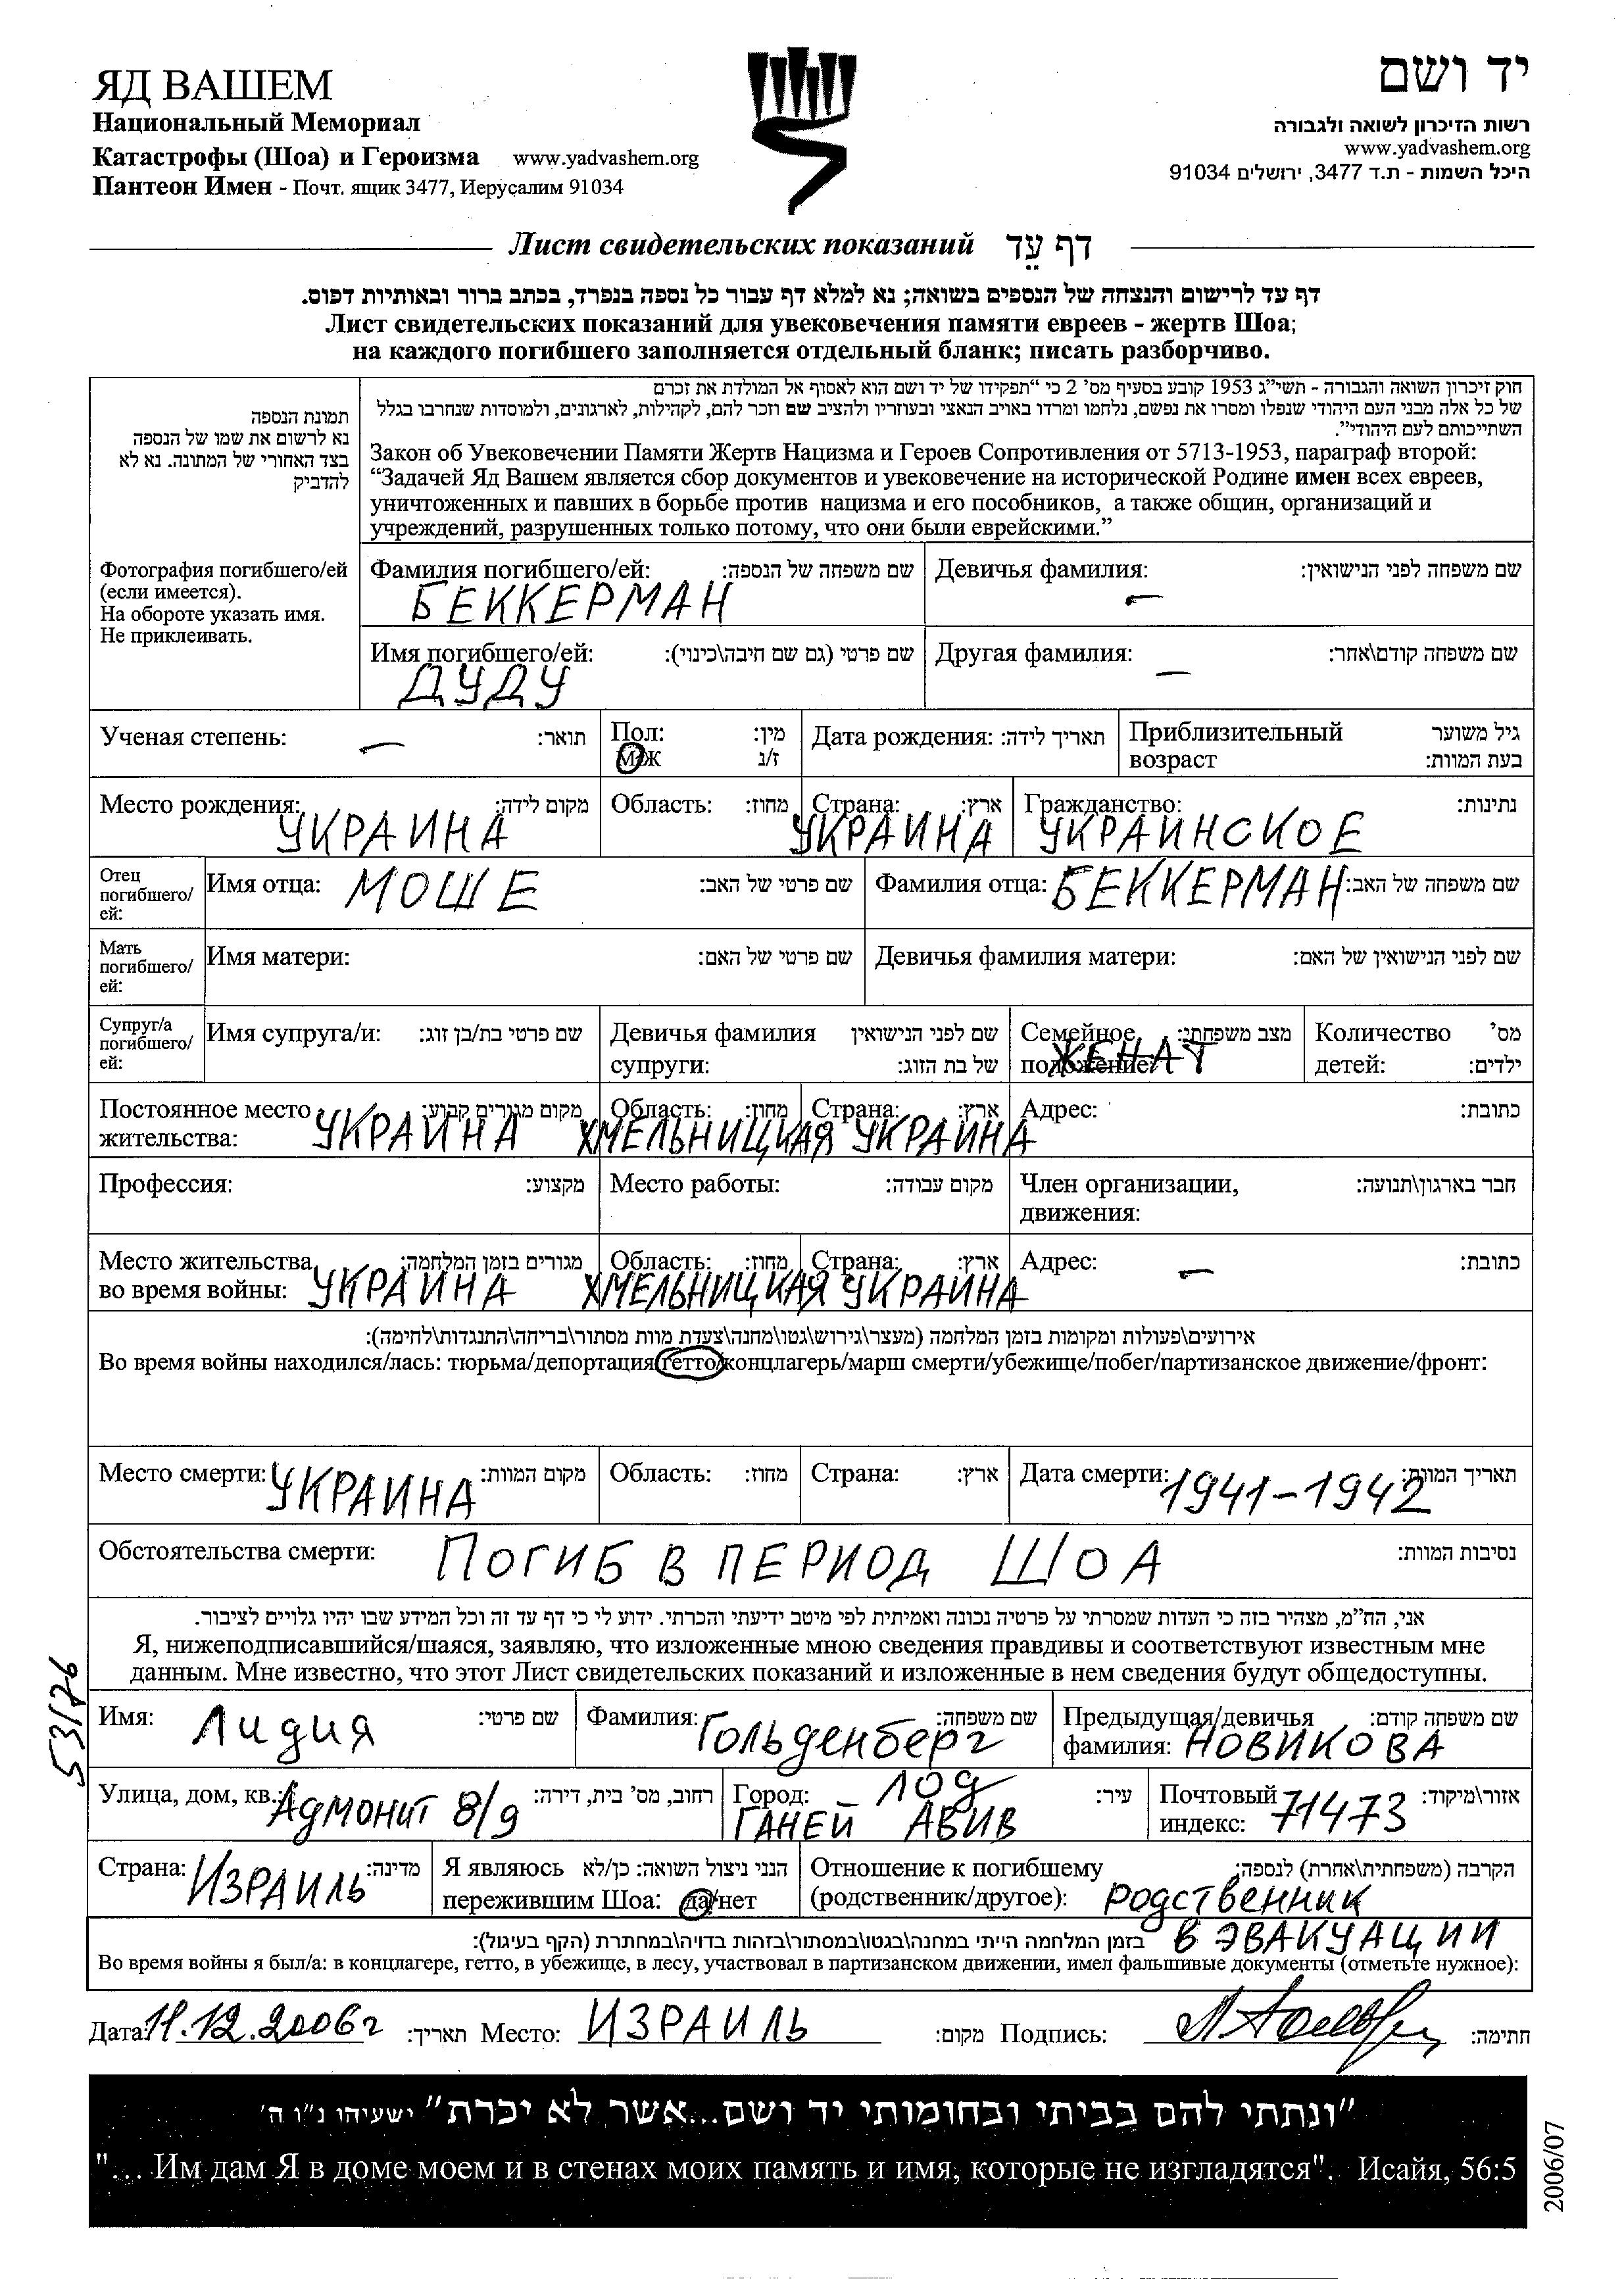 ЯД ВАШЕМ
Национальный Мемориал
Катастрофы (Шоа) и Героизма www.yadvashem.org
Пантеон Имен - Почт. ящик 3477, Иерусалим 91034
יד ושם
רשות הזיכרון לשואה ולגבורה
www.yadvashem.org
היכל השמות - ת.ד 3477, ירושלים 91034
Лист свидетельских показаний דף עֵד
דף עד לרישום והנצחה של הנספים בשואה; נא למלא דף עבור כל נספה בנפרד, בכתב ברור ובאותיות דפוס.
Лист свидетельских показаний для увековечения памяти евреев - жертв Шоа;
на каждого погибшего заполняется отдельный бланк; писать разборчиво.
תמונת הנספה
נא לרשום את שמו של הנספה
בצד האחורי של התמונה. נא לא
להדביק
Фотография погибшего/ей
(если имеется).
На обороте указать имя.
Не приклеивать.
חוק זיכרון השואה והגבורה - תשי"ג 1953 קובע בסעיף מס' 2 כי "תפקידו של יד ושם הוא לאסוף אל המולדת את זכרם
של כל אלה מבני העם היהודי שנפלו ומסרו את נפשם, נלחמו ומרדו באויב הנאצי ובעוזריו ולהציב שם וזכר להם, לקהילות, לארגונים, ולמוסדות שנחרבו בגלל
השתייכותם לעם היהודי".
Закон об Увековечении Памяти Жертв Нацизма и Героев Сопротивления от 5713-1953, параграф второй:
“Задачей Яд Вашем является сбор документов и увековечение на исторической Родине имен всех евреев,
уничтоженных и павших в борьбе против нацизма и его пособников, а также общин, организаций и
учреждений, разрушенных только потому, что они были еврейскими.”
Фамилия погибшего/ей: שם משפחה של הנספה: Девичья фамилия: שם משפחה לפני הנישואין:
БЕККЕРМАН —
Имя погибшего/ей: שם פרטי (גם שם חיבה\כינוי): Другая фамилия: שם משפחה קודם\אחר:
ДУДУ —
Ученая степень: — תואר: Пол: מין: Дата рождения: תאריך לידה: Приблизительный גיל משוער
М/Ж ז/נ возраст בעת המוות:
Место рождения: מקום לידה: Область: מחוז: Страна: ארץ: Гражданство: נתינות:
УКРАИНА УКРАИНА УКРАИНСКОЕ
Отец
погибшего/
ей:
Имя отца: МОШЕ שם פרטי של האב: Фамилия отца: БЕККЕРМАН שם משפחה של האב:
Мать
погибшего/
ей:
Имя матери: שם פרטי של האם: Девичья фамилия матери: שם לפני הנישואין של האם:
Супруг/а
погибшего/
ей:
Имя супруга/и: שם פרטי בת/בן זוג: Девичья фамилия שם לפני הנישואין Семейное מצב משפחתי: Количество מס'
супруги: של בת הזוג: положение: ЖЕНАТ детей: ילדים:
Постоянное место מקום מגורים קבוע: Область: מחוז: Страна: ארץ: Адрес: כתובת:
жительства: УКРАИНА ХМЕЛЬНИЦКАЯ УКРАИНА
Профессия: מקצוע: Место работы: מקום עבודה: Член организации, חבר בארגון\תנועה:
движения:
Место жительства מגורים בזמן המלחמה: Область: מחוז: Страна: ארץ: Адрес: — כתובת:
во время войны: УКРАИНА ХМЕЛЬНИЦКАЯ УКРАИНА
אירועים\פעולות ומקומות בזמן המלחמה (מעצר\גירוש\גטו\מחנה\צעדת מוות מסתור\בריחה\התנגדות\לחימה):
Во время войны находился/лась: тюрьма/депортация/гетто/концлагерь/марш смерти/убежище/побег/партизанское движение/фронт:
Место смерти: УКРАИНА מקום המוות: Область: מחוז: Страна: ארץ: Дата смерти: 1941-1942 תאריך המוות:
Обстоятельства смерти: ПОГИБ В ПЕРИОД ШОА נסיבות המוות:
אני, הח"מ, מצהיר בזה כי העדות שמסרתי על פרטיה נכונה ואמיתית לפי מיטב ידיעתי והכרתי. ידוע לי כי דף עד זה וכל המידע שבו יהיו גלויים לציבור.
Я, нижеподписавшийся/шаяся, заявляю, что изложенные мною сведения правдивы и соответствуют известным мне
данным. Мне известно, что этот Лист свидетельских показаний и изложенные в нем сведения будут общедоступны.
53/76
Имя: Лидия שם פרטי: Фамилия: Гольденберг שם משפחה: Предыдущая/девичья שם משפחה קודם:
фамилия: НОВИКОВА
Улица, дом, кв.: Адмонит 8/9 רחוב, מס' בית, דירה: Город: – ЛОД עיר: Почтовый 71473 אזור\מיקוד:
ГАНЕЙ АВИВ индекс:
Страна: ИЗРАИЛЬ מדינה: Я являюсь הנני ניצול השואה: כן/לא Отношение к погибшему הקרבה (משפחתית\אחרת) לנספה:
пережившим Шоа: да/нет (родственник/другое): родственник
בזמן המלחמה הייתי במחנה\בגטו\במסתור\בזהות בדויה\במחתרת (הקף בעיגול): В ЭВАКУАЦИИ
Во время войны я был/а: в концлагере, гетто, в убежище, в лесу, участвовал в партизанском движении, имел фальшивые документы (отметьте нужное):
Дата: 11.12.2006г תאריך: Место: ИЗРАИЛЬ מקום: Подпись: חתימה:
"ונתתי להם בביתי ובחומותי יד ושם...אשר לא יכרת" ישעיהו נ"ו ה'
"... Им дам Я в доме моем и в стенах моих память и имя, которые не изгладятся". Исайя, 56:5
2006/07